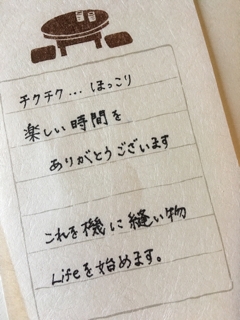 チクチク… ほっこり
楽しい時間を
ありがとうございます
これを機に縫い物
Lifeを始めます。